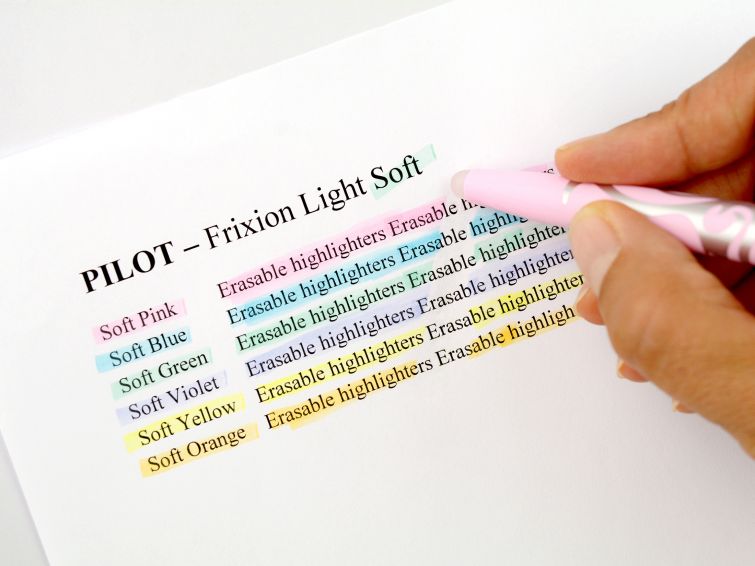 PILOT – Frixion Light Soft
Soft Pink Erasable highlighters Erasable
Soft Blue Erasable highlighters Erasable
Soft Green Erasable highlighters Erasable highlighters
Soft Violet Erasable highlighters Erasable highlighter
Soft Yellow Erasable highlighters Erasable highlighter
Soft Orange Erasable highlighters Erasable highligh